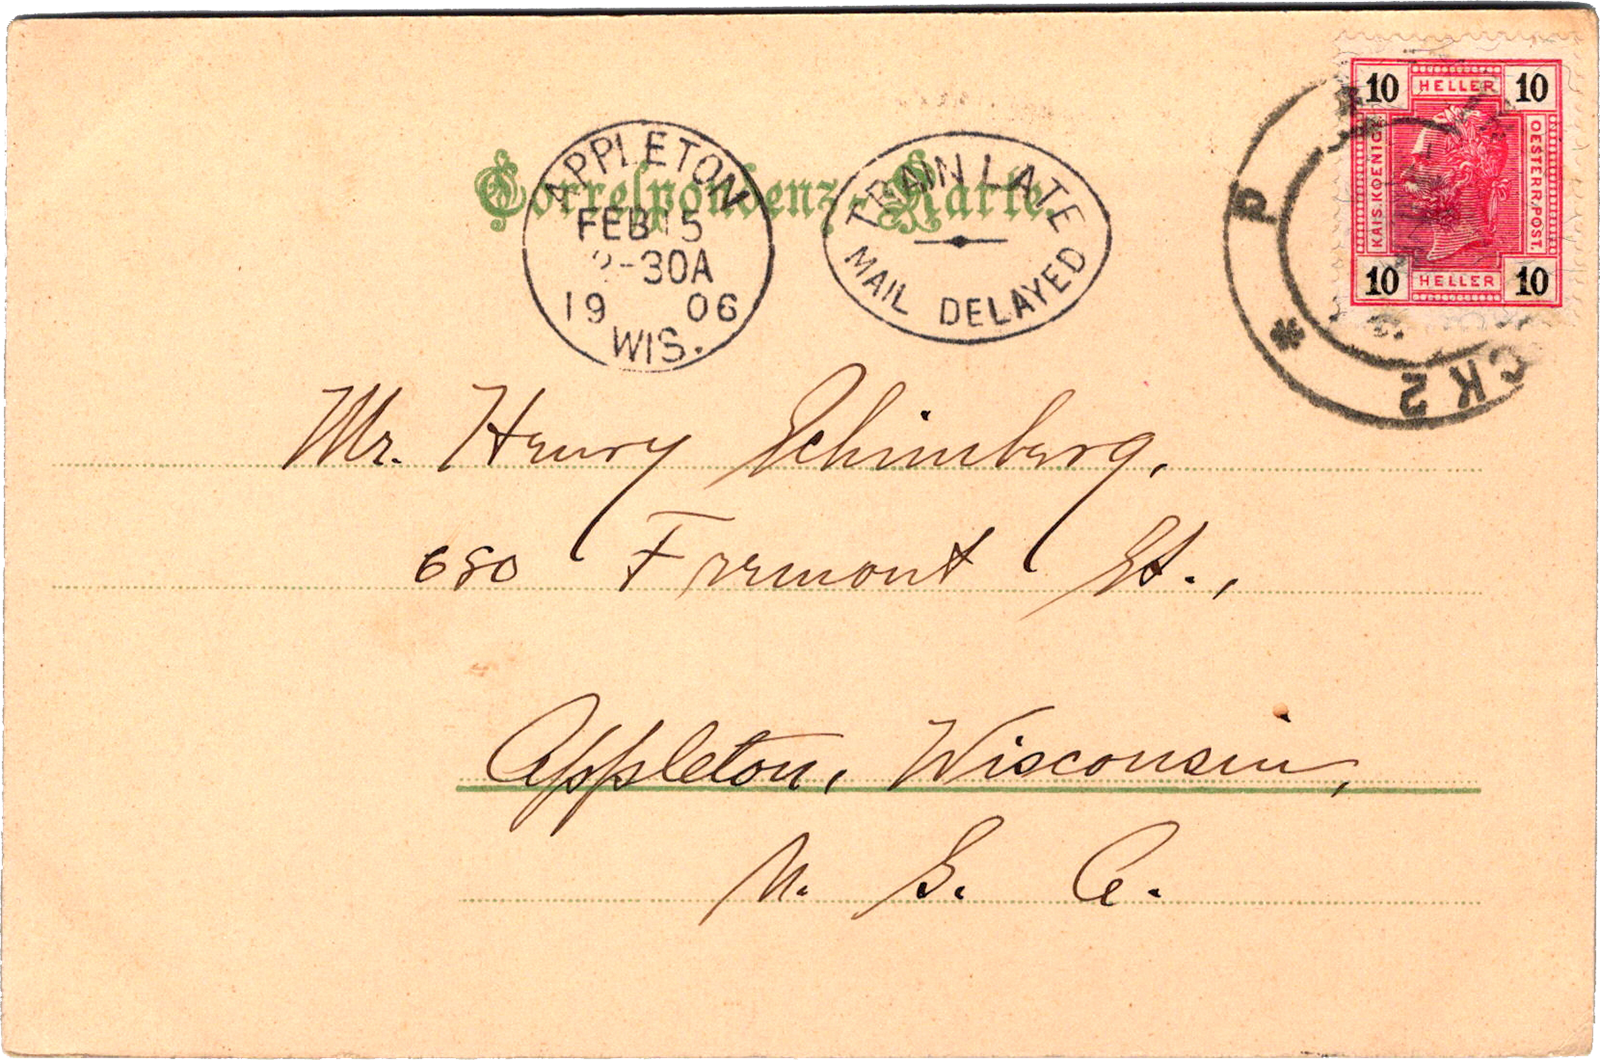 Correspondenz-Karte.
APPLETON
FEB 15
-30A
19 06
WIS.
TRAIN LATE
MAIL DELAYED
10 HELLER 10
KAIS.KOENIGL.
OESTERR.POST.
10 HELLER 10
P
CK 2
Mr. Henry Schimberg,
680 Fremont St.,
Appleton, Wisconsin,
U. S. A.